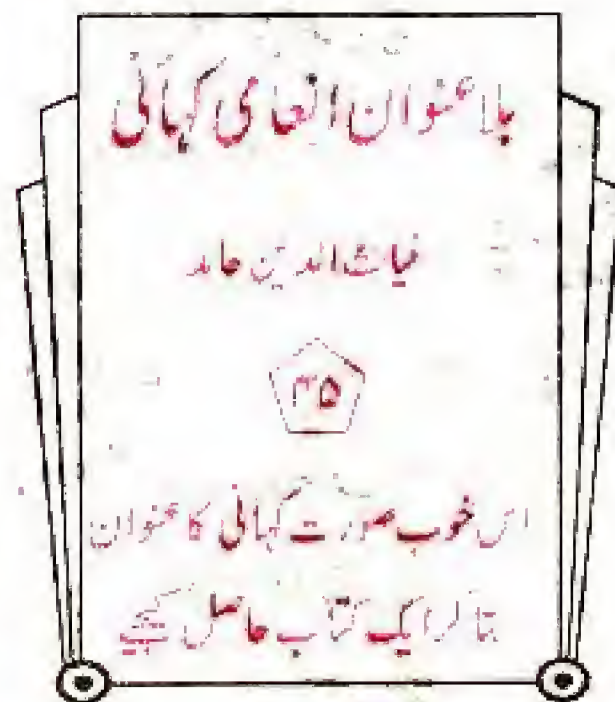 بلاعنوان انعامی کہانی
غیاث الدین حامد
۳۵
اس خوب صورت کہانی کا عنوان
بتا کر ایک کتاب حاصل کیجیے